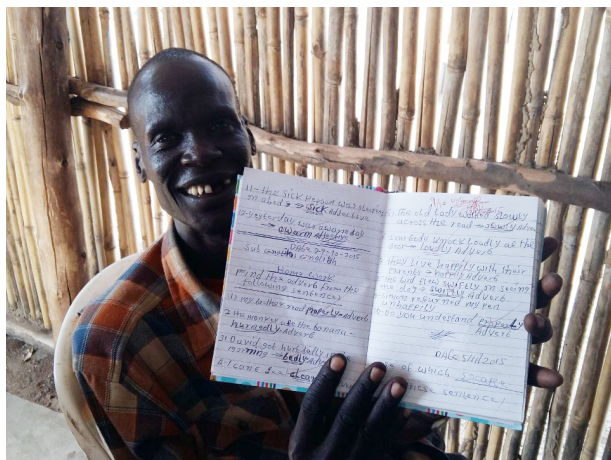 11 - the sick person was
in abed → sick Adjective
12 yesterday was a warm day
→ a warm Adjective
Date 27-10-2015
Sub English English
Home work
Find the adverb from the
following sentences
1) my brother read properly → adverb
2. the monkey ate the banana -
hurredly Adverb
3) David got hurt badly
morning → badly
the old lady walked slowly
across the road → slowly Adverb
somebody knock loudly at the
loudly Adverb
they live happily with their
Parents → happily Adverb
the bird flew swiftly on seeing
the dog → swiftly Adverb
returned my pen
happily
Do you understand properly
Adverb
Date 5/11/2015
of which
sentence